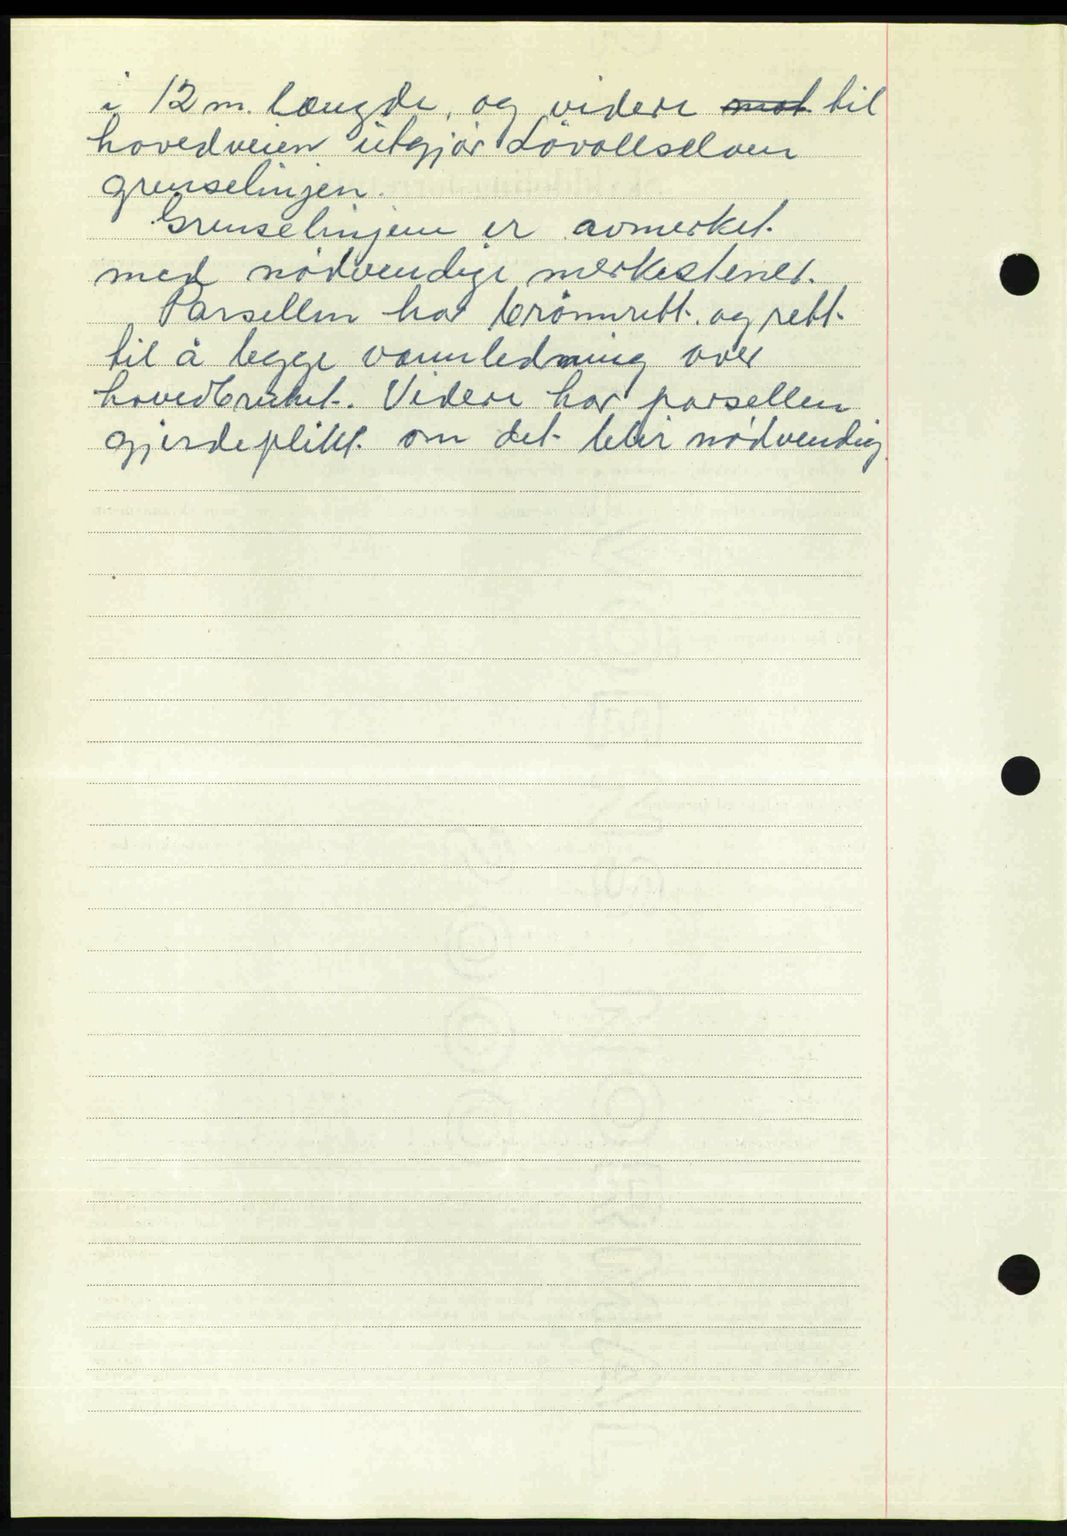 i 12 m. længde, og videre ~~mot~~ til
hovedveien utgjør Løvollselven
grenselinjen.
Grenselinjene er avmerket
med nødvendige merkestener.
Parsellen har brønnrett og rett
til å legge vannledning over
hovedbruket. Videre har parsellen
gjerdeplikt om det blir nødvendig.